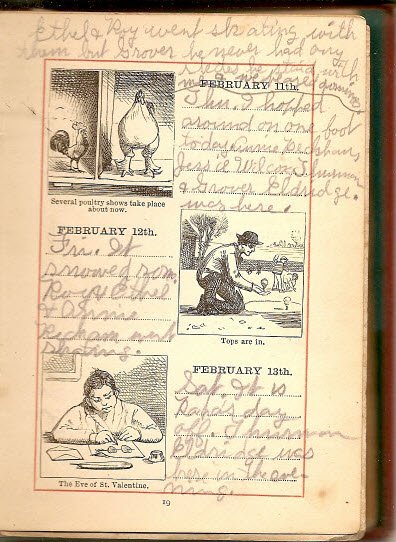 Ethel & Roy went skating with
them but Grover he never had any
skates he staid with
me & we played games.
FEBRUARY 11th.
Thu. I hopped
around on one foot
today. Annie
Jessie Wilcox Thurman
& Grover Eldridge.
was here.
Several poultry shows take place
about now.
FEBRUARY 12th.
Fri. It
snowed some.
Roy & Ethel
& Annie
went
skating.
Tops are in.
FEBRUARY 13th.
Sat. It is
Papa's day
off. Thurman
Eldridge was
here in the eve-
ning.
The Eve of St. Valentine.
19